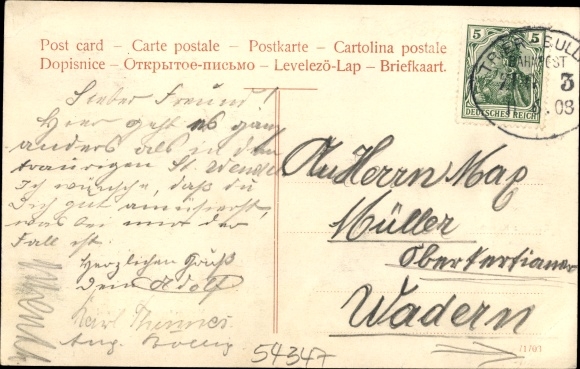 Post card – Carte postale – Postkarte – Cartolina postale
Dopisnice – Открытое-письмо – Levelező-Lap – Briefkaart.
5 5
DEUTSCHES REICH
TRIER
BAHNPOST
3
08
Lieber Freund!
Hier geht es ganz
anders als in dem
traurigen St. Wendel
Ich wünsche, daß du
Dich gut amüsierst,
was bei mir der
Fall ist.
Herzlichen Gruß
Dein Adolf
Karl
Aug.
An Herrn Max
Müller
Obertertianer
Wadern
54347